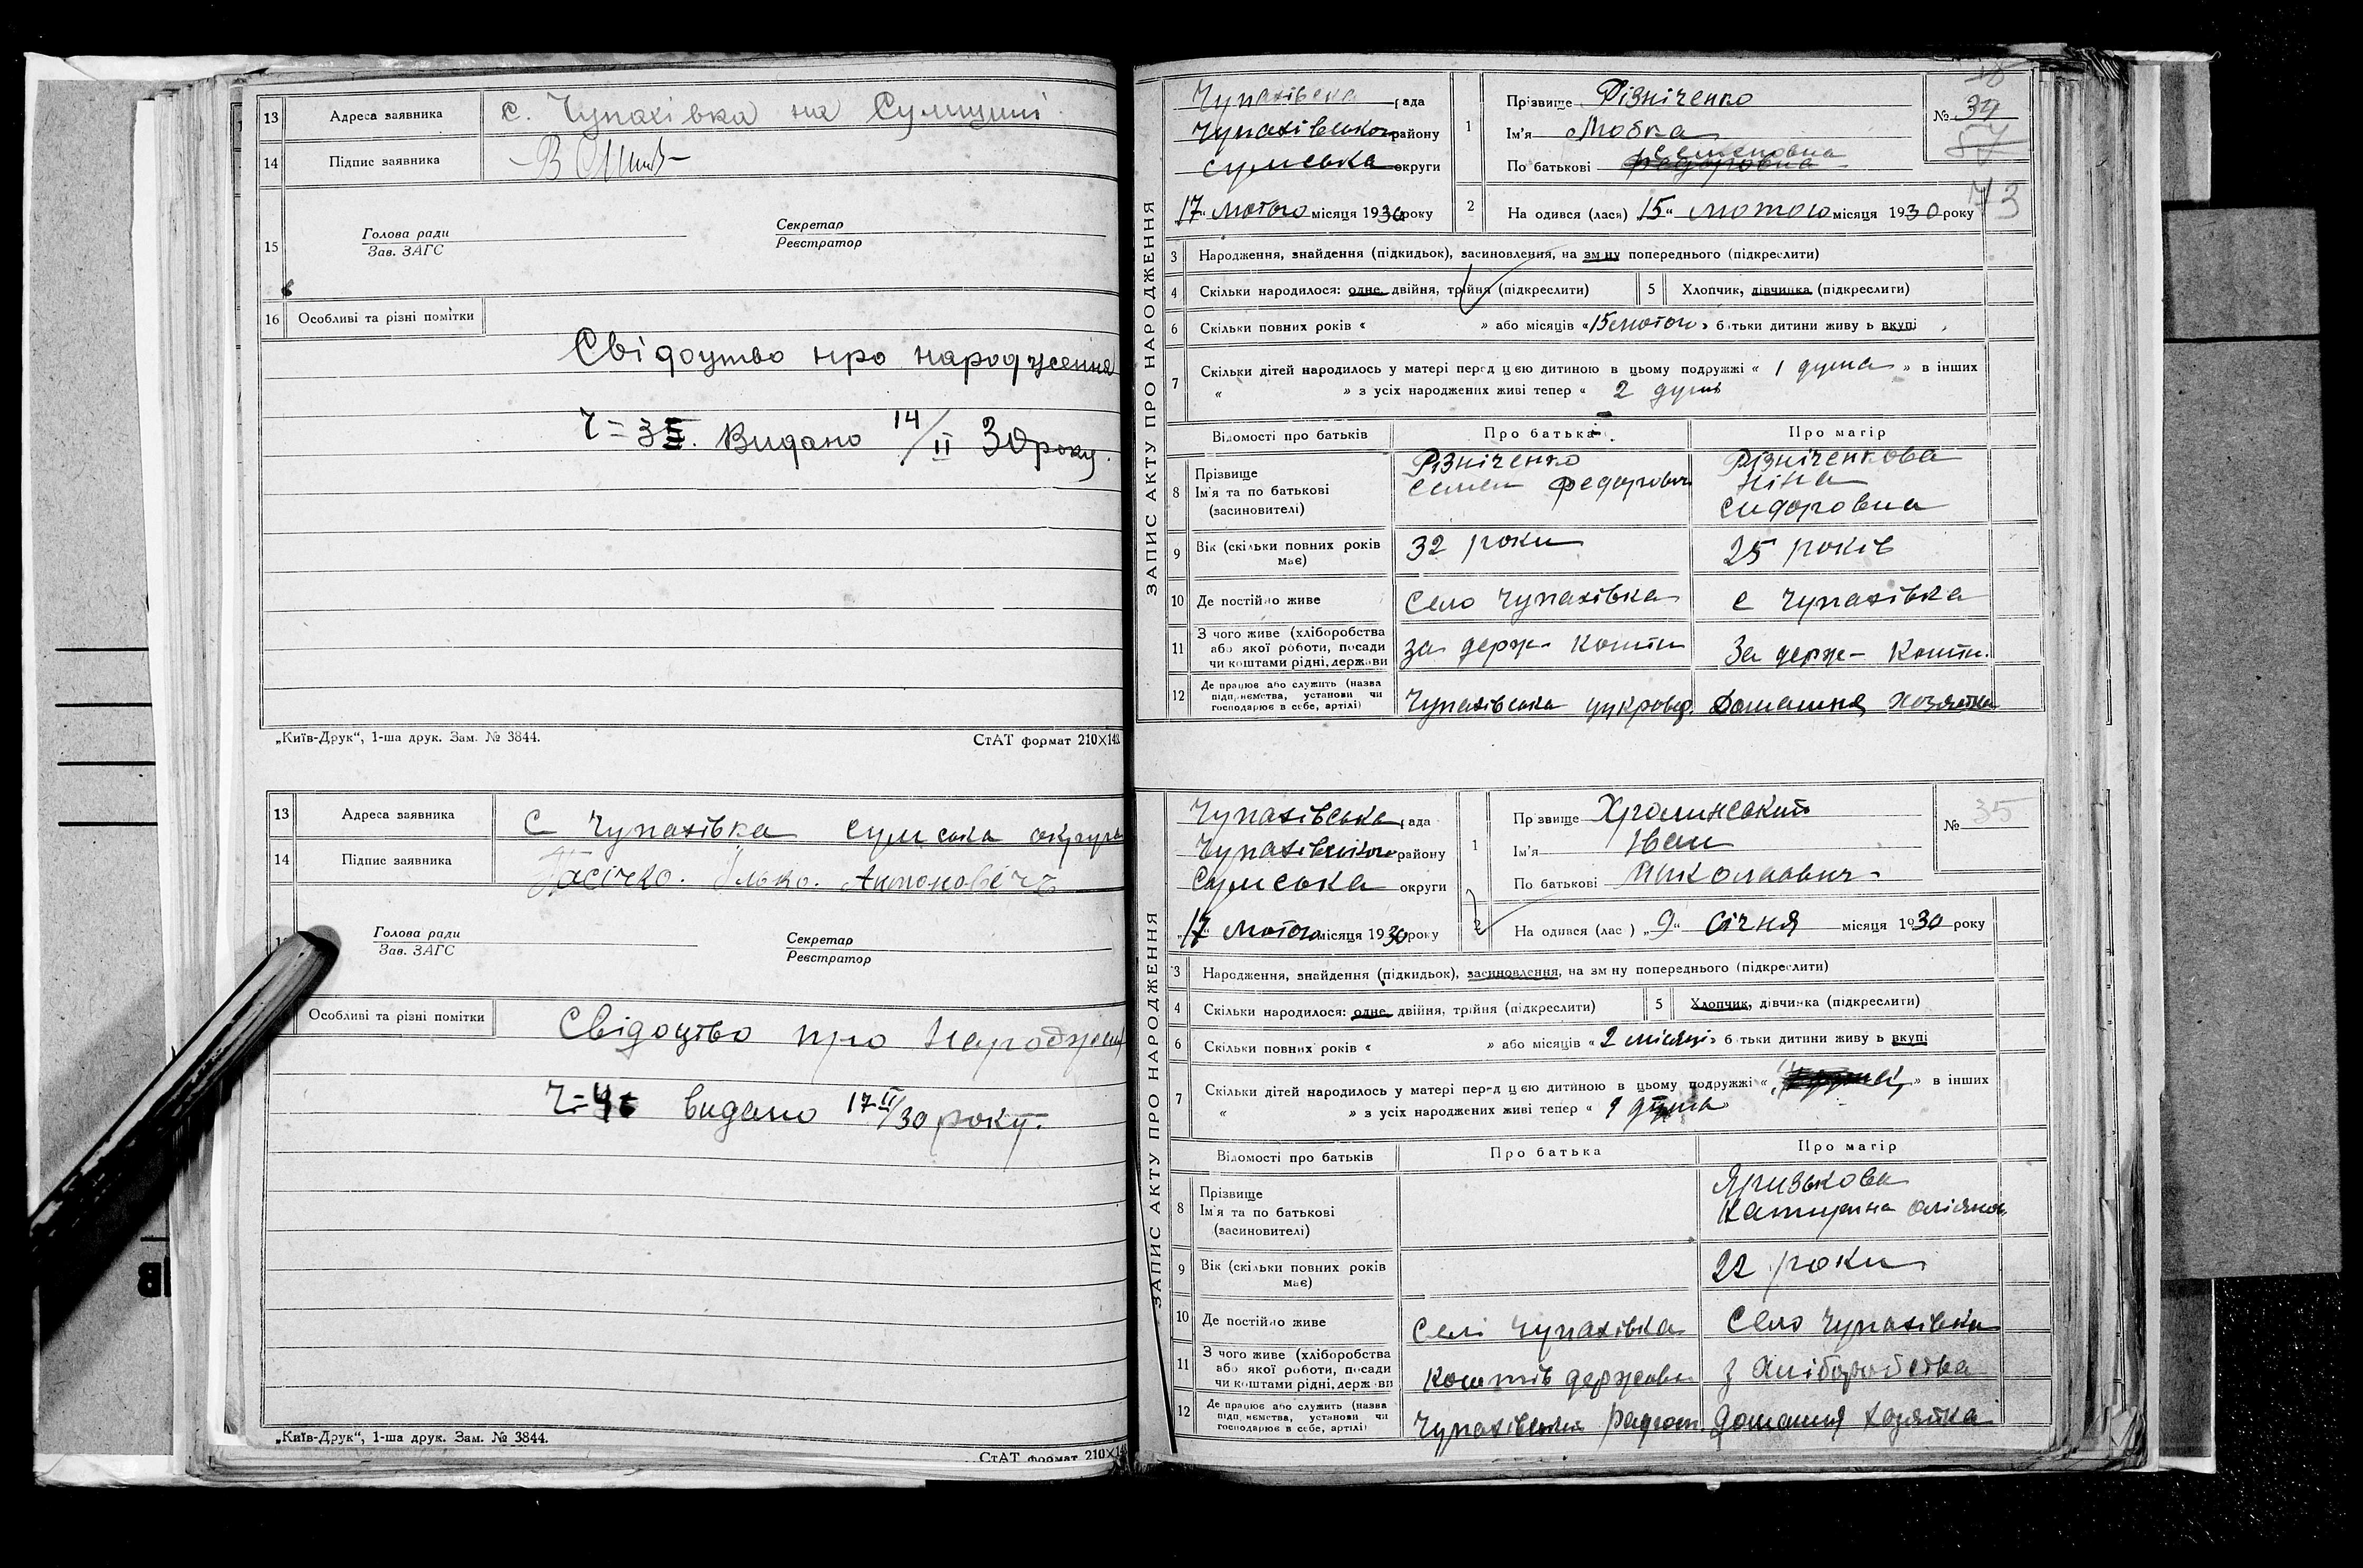 13 Адреса заявника с. Чупахівка на Сумщині
14 Підпис заявника
15 Голова ради Секретар
Зав. ЗАГС Реєстратор
16 Особливі та різні помітки
Свідоцтво про народження
Ч= Видано 14/II 30 року.
„Київ-Друк“, 1-ша друк. Зам. № 3844. СтАТ формат 210X14
13 Адреса заявника с Чупахівка сумська округа
14 Підпис заявника Пасічко. Антоновічь
Голова ради Секретар
Зав. ЗАГС Реєстратор
Особливі та різні помітки
Свідоцтво про народжен
видано 17 II/30 року.
„Київ-Друк“, 1-ша друк. Зам. № 3844.
СтАТ формат 210X14
ЗАПИС АКТУ ПРО НАРОДЖЕННЯ
Чупахівська рада
Чупахівського району
Сумська округи
17 Лютого місяця 1930 року
1 Прізвище Різніченко
Ім'я
По батькові Семеновна Федоровна
№ 34
57
73
2 На одився (лася) „15“ Лютого місяця 1930 року
3 Народження, знайдення (підкидьок), засиновлення, на зм ну попереднього (підкреслити)
4 Скільки народилося: одне, двійня, трійня (підкреслити) 5 Хлопчик, дівчинка (підкреслити)
6 Скільки повних років « » або місяців «15 лютого» б тьки дитини живу ь вкупі
7 Скільки дітей народилось у матері перед цією дитиною в цьому подружжі « 1 душа » в інших
« » з усіх народжених живі тепер « 2 душі
Відомості про батьків Про батька Про матір
8 Прізвище Різніченко Різніченкова
Ім'я та по батькові Семен Федорович Ніна
(засиновителі) Сидоровна
9 Вік (скільки повних років має) 32 роки 25 років
10 Де постійно живе Село Чупахівка с Чупахівка
11 З чого живе (хліборобства або якої роботи, посади чи коштами рідні, держави за держ- кошти За держ- кошти.
12 Де працює або служить (назва підприємства, установи чи господарює в себе, артілі) Чупахівська цукровар. Домашня хозяйка
ЗАПИС АКТУ ПРО НАРОДЖЕННЯ
Чупахівська рада
Чупахівського району
Сумська округи
„17“ Лютого місяця 1930 року
1 Прізвище
Ім'я Іван
По батькові Миколаович
№ 35
2 На одився (лас ) „9“ Січня місяця 1930 року
3 Народження, знайдення (підкидьок), засиновлення, на зм ну попереднього (підкреслити)
4 Скільки народилось: одне, двійня, трійня (підкреслити) 5 Хлопчик, дівчинка (підкреслити)
6 Скільки повних років « » або місяців «2 місяці» б тьки дитини живу ь вкупі
7 Скільки дітей народилось у матері перед цією дитиною в цьому подружжі « » в інших
« » з усіх народжених живі тепер « 1 душа
Відомості про батьків Про батька Про матір
8 Прізвище
Ім'я та по батькові Катирина
(засиновителі)
9 Вік (скільки повних років має) 22 роки
10 Де постійно живе Селі Чупахівка Село Чупахівка
11 З чого живе (хліборобства або якої роботи, посади чи коштами рідні, держави коштів держави з хліборобства
12 Де працює або служить (назва підприємства, установи чи господарює в себе, артілі) Чупахівськи радгосп. Домашня хозяйка